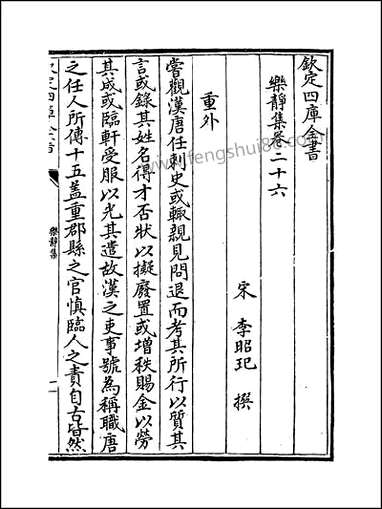 欽定四庫全書
樂靜集卷二十六
宋 李昭玘 撰
重外
嘗觀漢唐任刺史或輙親見問退而考其所行以質其
言或錄其姓名得才否狀以擬廢置或增秩賜金以勞
其成或臨軒受服以光其遣故漢之吏事號為稱職唐
之任人所傳十五蓋重郡縣之官慎臨人之責自古皆然
欽定四庫全書
樂靜集
一
www.fengshui86.com